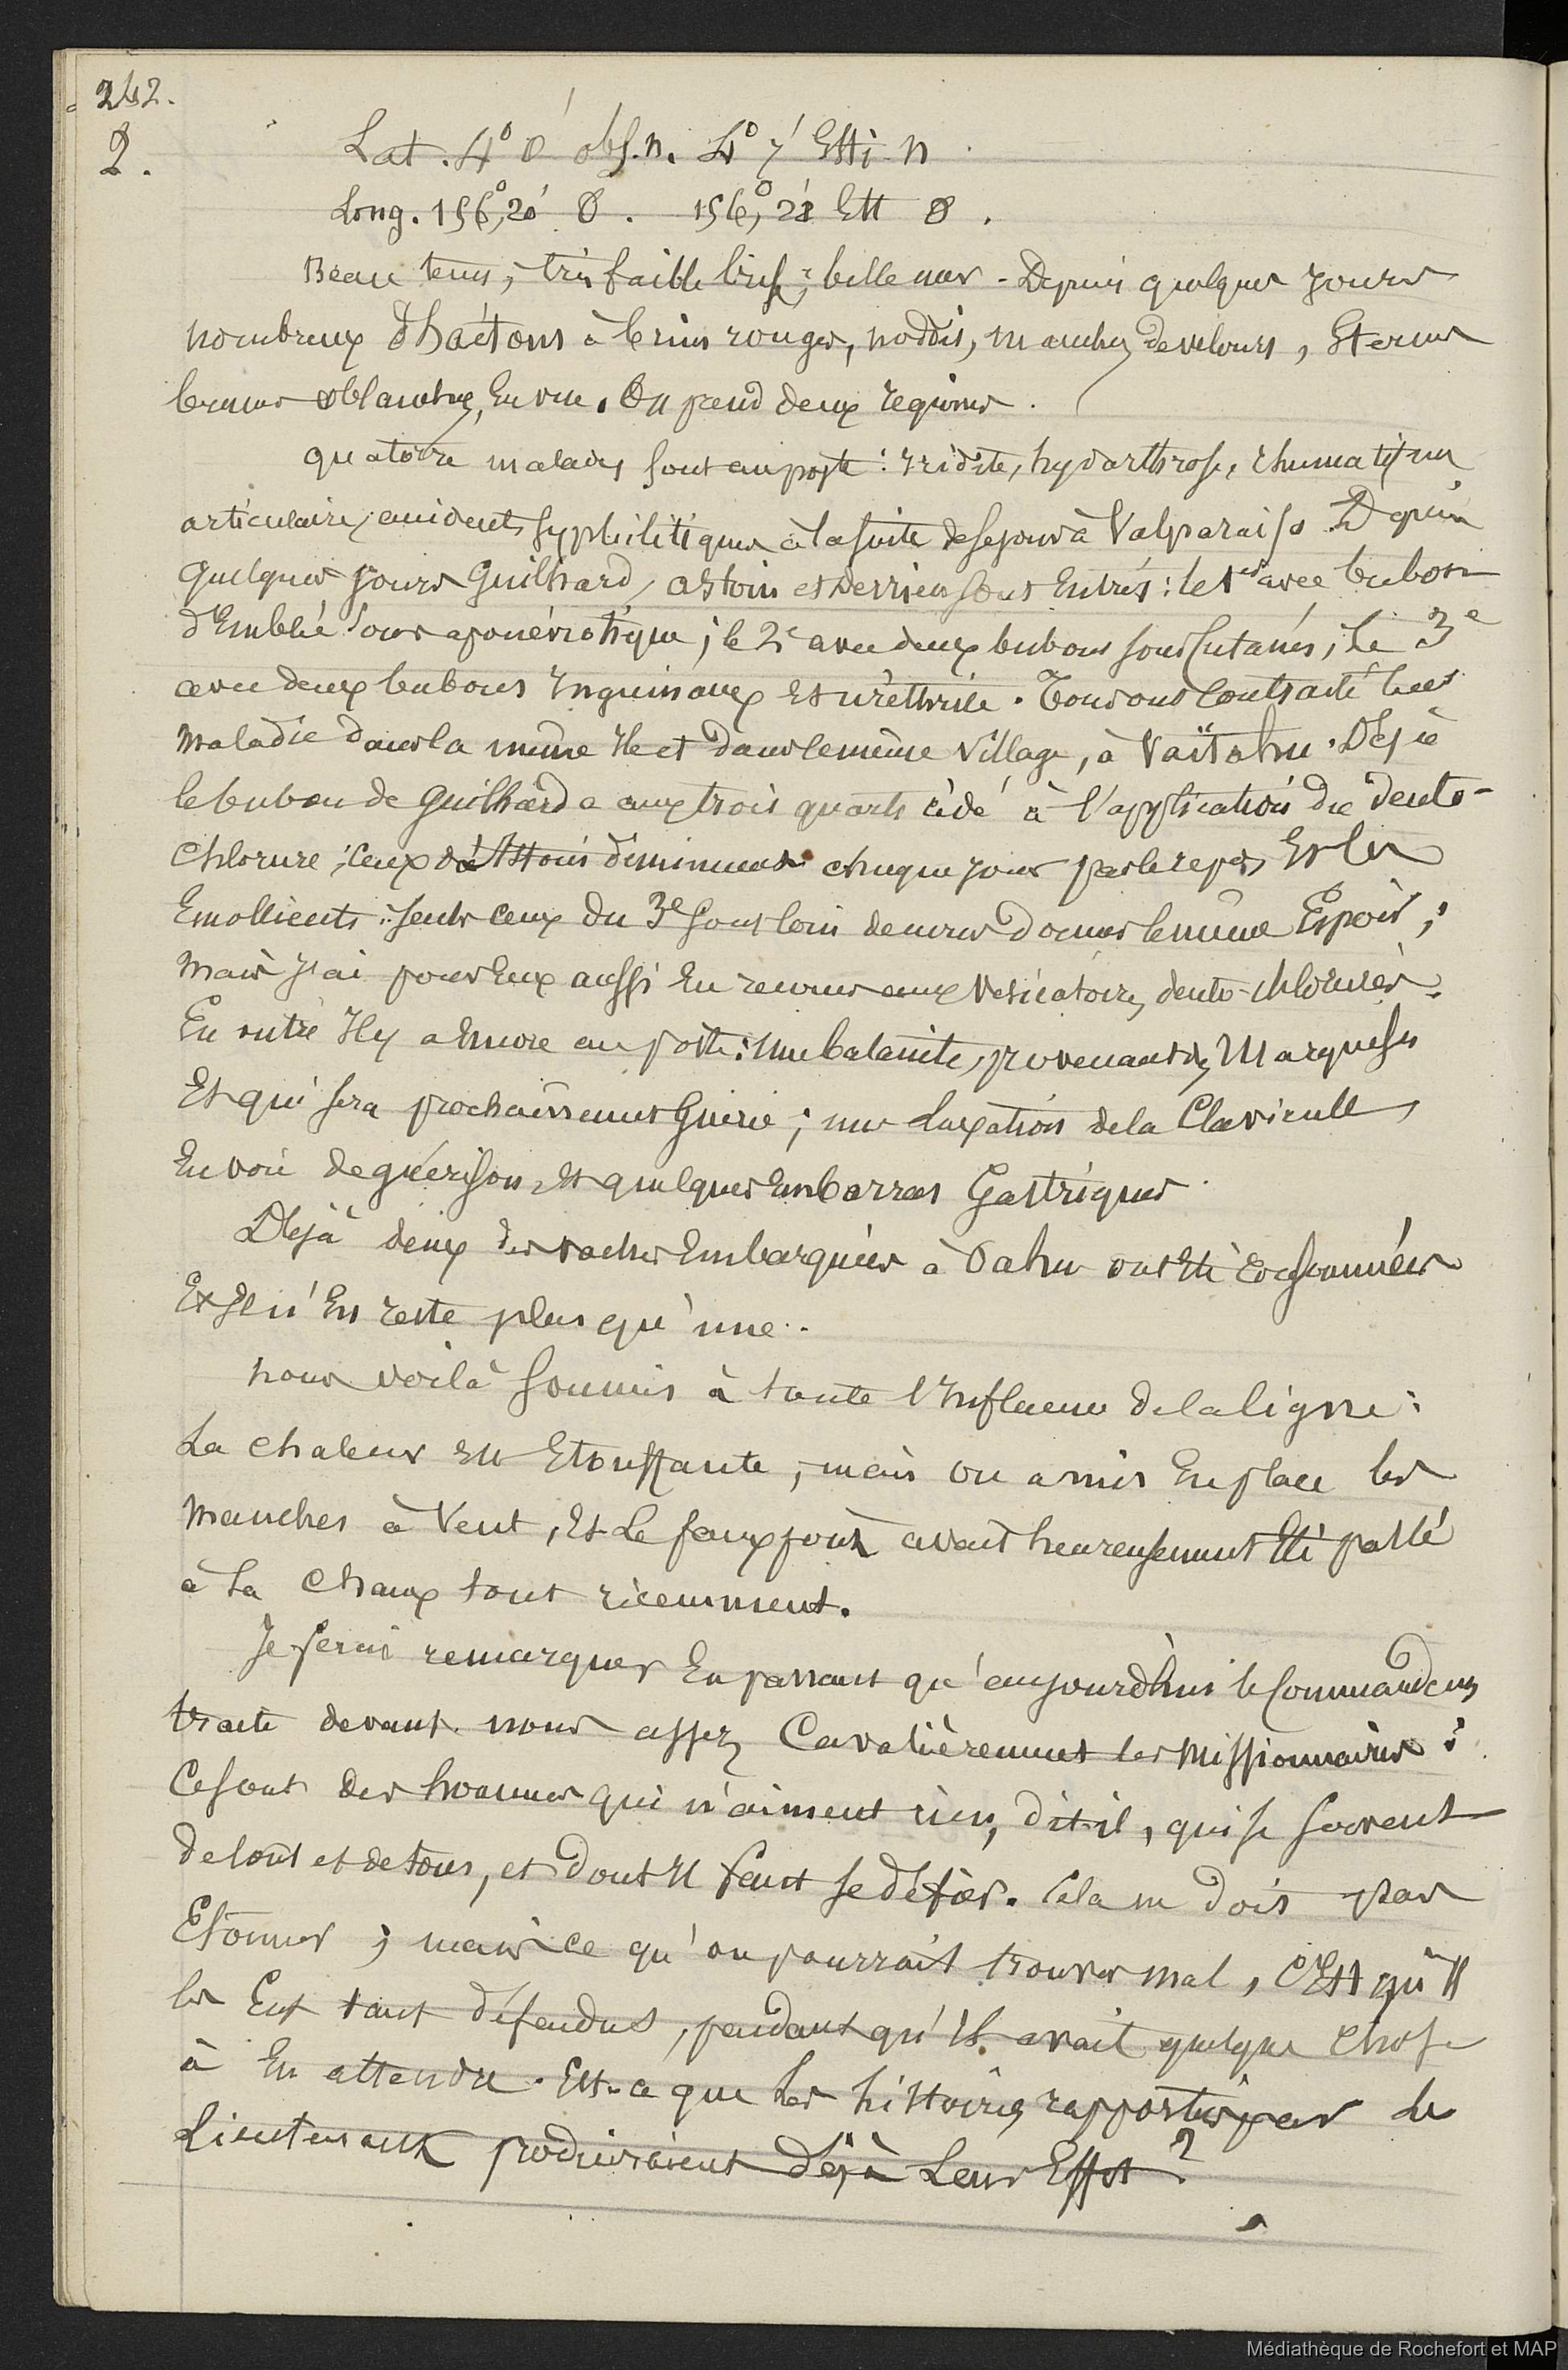 242.
2.
Lat. 4° 0' obs. n. 4° 7' Esti n
Long. 156°, 20' O. 156°, 21' Est O.
Beau tems, très faible brise, belle mer - Depuis quelques jours
nombreux Phaétons à brins rouges, noddis, manches de velours, Sternes
brunes & blanches, en vue. On prend deux requins.
quatorze malades sont au poste : iridite, hydarthrose, rhumatisme
articulaire, accidents syphilitiques à la suite de sejour à Valparaiso. Depuis
quelques jours Guilhard, Astoin et Derrien sont Entrés : le 1er avec bubon
d'Emblée sous aponévrotique ; le 2e avec deux bubons sous cutanés, le 3e
avec deux bubons inguinaux Et uréthrite. Tous ont contracté leur
maladie dans la même Ile et dans le même Village, à Vaïtahu. Déjà
le bubon de Guilhard a aux trois quarts cédé à l'application du deuto-
chlorure ; ceux d'Astoin diminuent chaque jour par le repos Et les
Emollients : seuls ceux du 3e sont loin de nous donner le même Espoir ;
mais j'ai pour Eux aussi Eu recours aux vésicatoires deuto-chlorurés.
En outre Il y a Encore au poste : une balanite, provenant des Marquises
Et qui sera prochainement Guérie ; une Luxation de la Clavicule,
En voie de guérison, Et quelques Embarras Gastriques.
Déjà deux des vaches Embarquées à Oahu ont Eté consommées
Et Il n'En reste plus qu'une.
nous voilà soumis à toute l'Influence de la ligne :
La chaleur Est Etouffante, mais on a mis En place les
manches à Vent, Et Le faux pont avait heureusement Eté passé
à la chaux tout récemment.
Je ferai remarquer En passant qu'aujourd'hui le Commandant
traite devant nous assez Cavalièrement les missionnaires :
Ce sont des hommes qui n'aiment rien, dit-il, qui se servent
de tout et de tous, et dont Il faut se défier. Cela ne doit pas
Etonner ; mais ce qu'on pourrait trouver mal, c'Est qu'Il
les Eut tant défendus, pendant qu'Il avait quelque chose
à En attendre. Est-ce que les histoires rapportées par le
Lieutenant produiraient déjà Leur Effet ?
Médiathèque de Rochefort et MAP